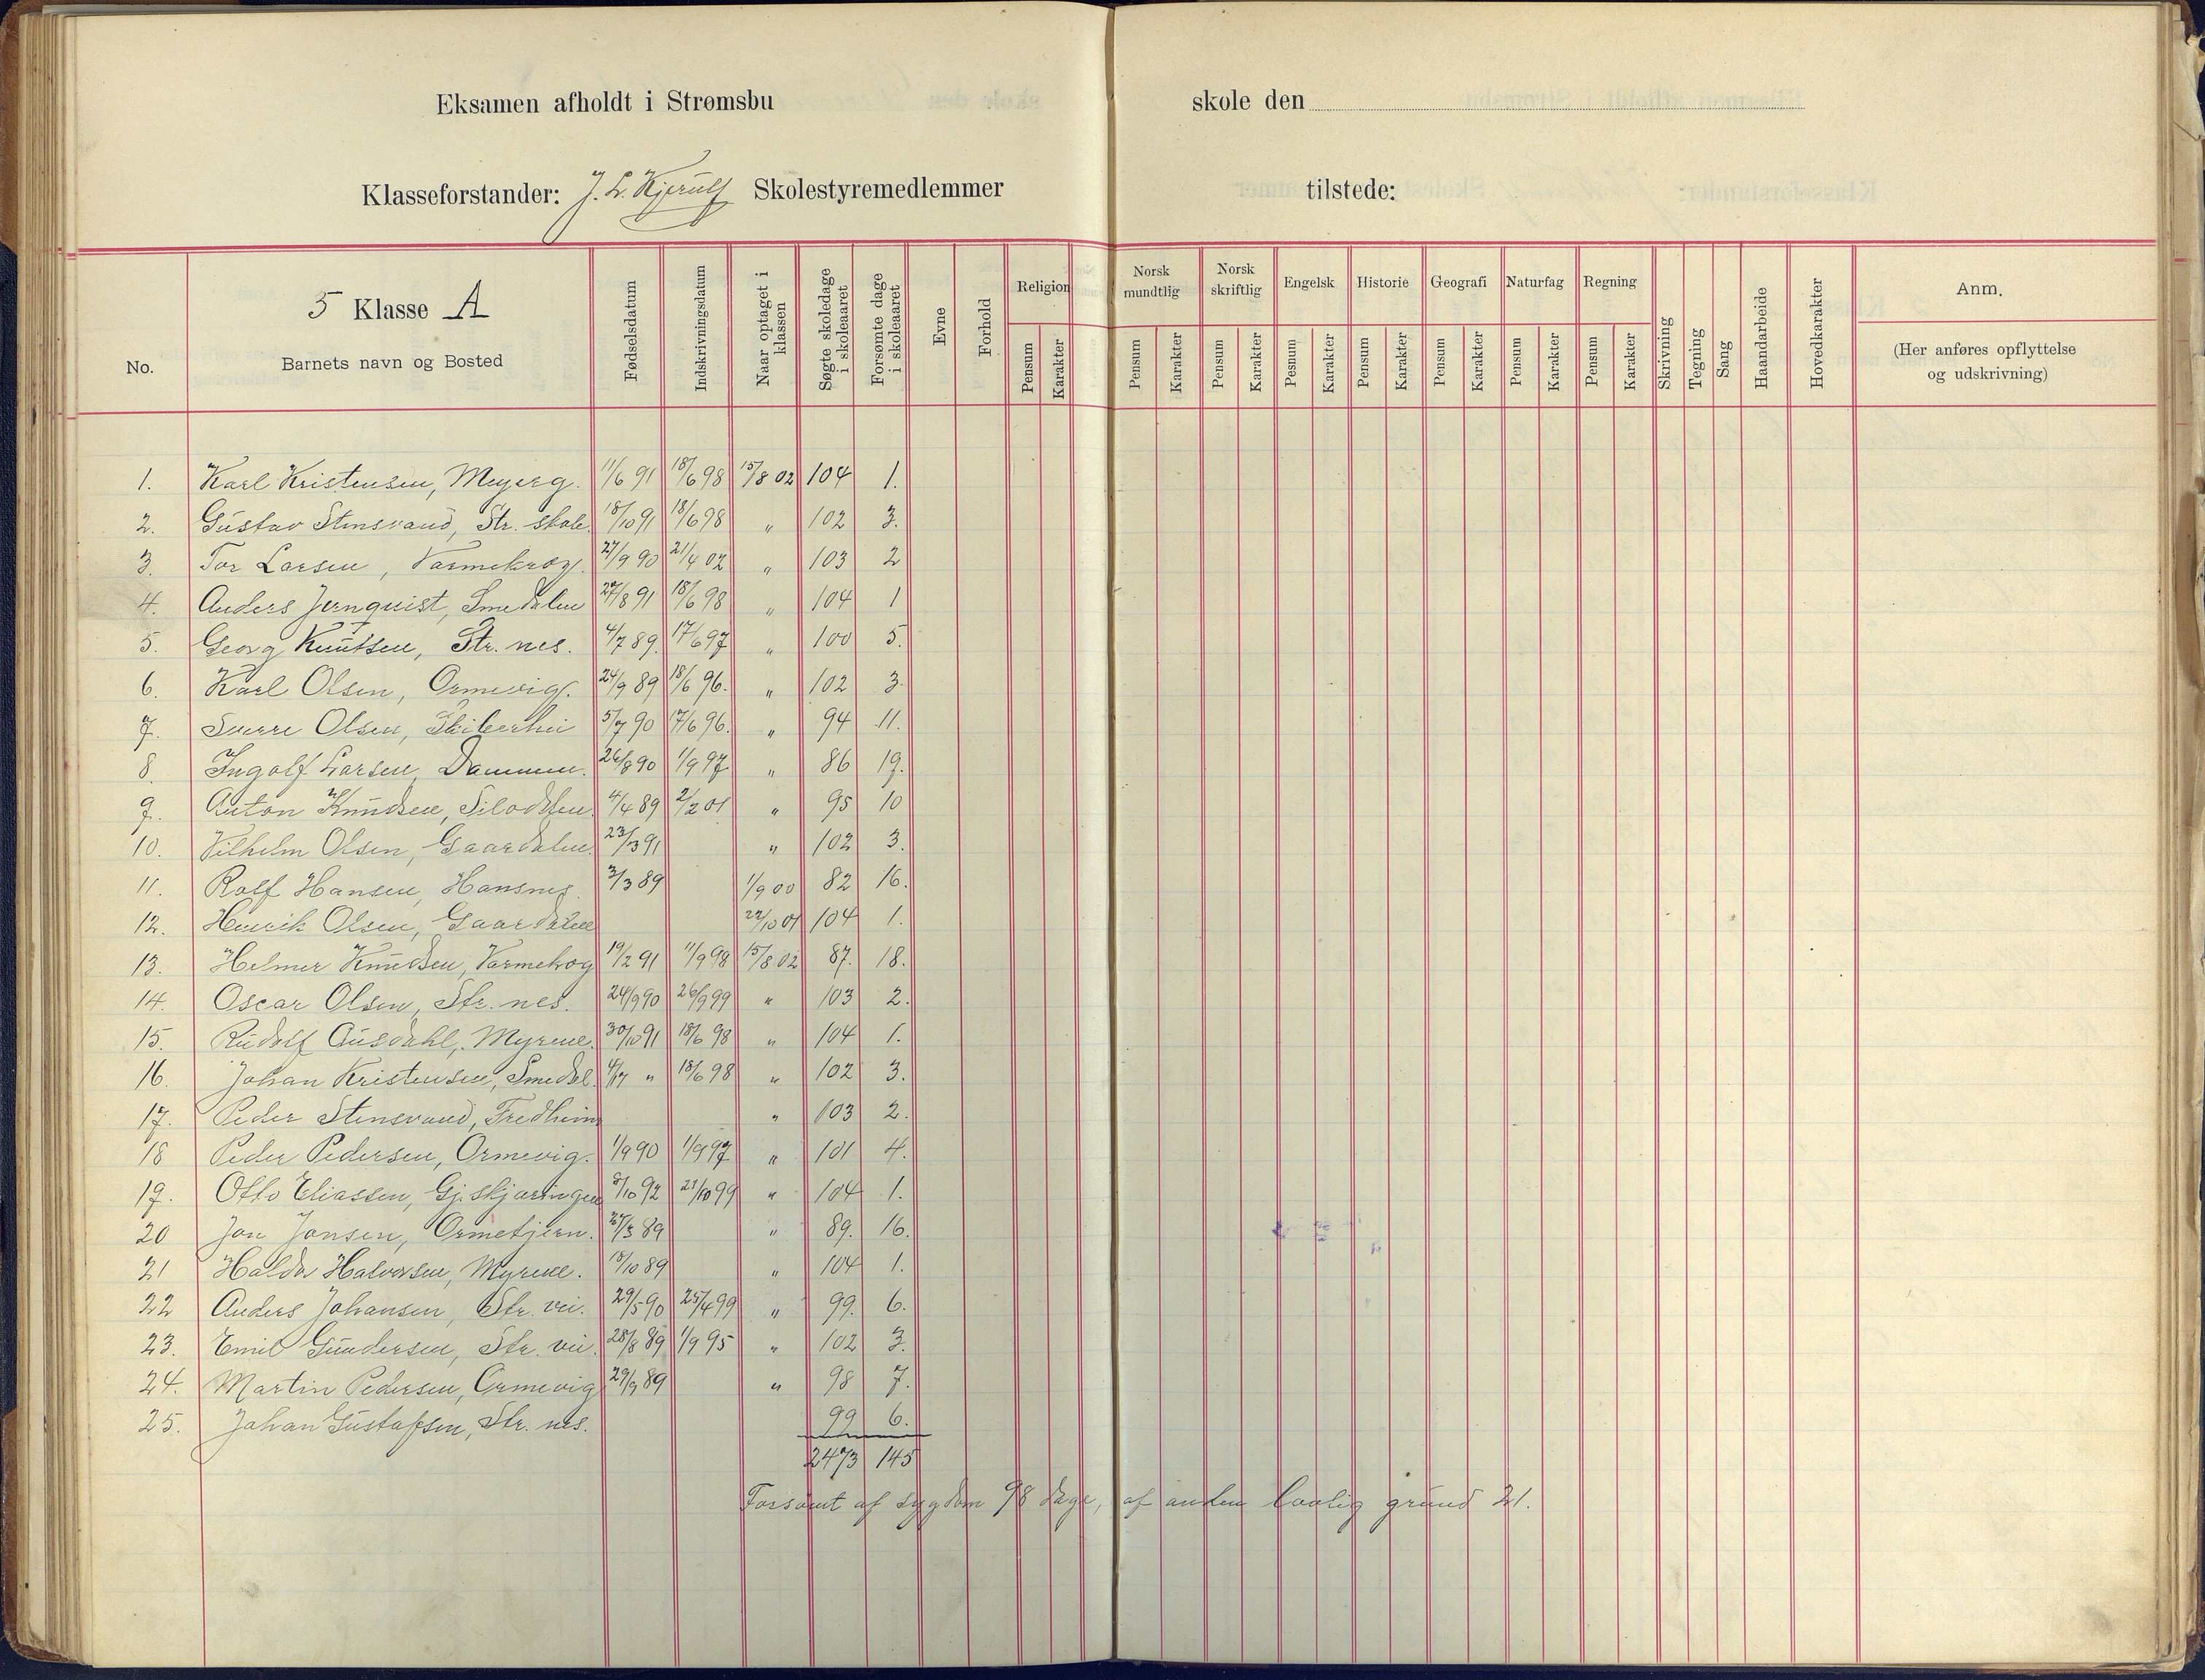 Eksamen afholdt i Strømsbu skole den
Klasseforstander: J. L. Kjerulf Skolestyremedlemmer tilstede:
No.
5 Klasse A
Barnets navn og Bosted
Fødselsdatum
Indskrivningsdatum
Naar optaget i klassen
Søgte skoledage i skoleaaret
Forsømte dage i skoleaaret
Evne
Forhold
Religion
Pensum
Karakter
Norsk mundtlig
Pensum
Karakter
Norsk skriftlig
Pensum
Karakter
Engelsk
Pesnum
Karakter
Historie
Pensum
Karakter
Geografi
Pensum
Karakter
Naturfag
Pensum
Karakter
Regning
Pensum
Karakter
Skrivning
Tegning
Sang
Haandarbeide
Hovedkarakter
Anm.
(Her anføres opflyttelse
og udskrivning)
1. Karl Kristensen, Myrerg. 11/6 91 18/6 98 15/8 02 104 1.
2. Gustav Stensvand, Str. skole. 18/10 91 18/6 98 " 102 3.
3. Tor Larsen, Varmekrog. 27/9 90 21/4 02 " 103 2
4. Anders Jernquist, Smedalen 27/8 91 18/6 98 " 104 1
5. Georg Knutsen, Str. nes. 4/7 89. 17/6 97 " 100 5.
6. Karl Olsen, Ormevig. 24/9 89 18/6 96. " 102 3.
7. Sverre Olsen, 5/7 90 17/6 96. " 94 11.
8. Ingolf Larsen, Dammen. 26/8 90 1/9 97 " 86 19.
9. Anton Knudsen, 4/4 89 2/2 01 " 95 10
10. Vilhelm Olsen, Gaardalen. 23/3 91 " 102 3.
11. Rolf Hansen, Hansnes. 3/3 89 1/9 00 82 16.
12. Henrik Olsen, Gaardalen 22/10 01 104 1.
13. Helmer Knudsen, Varmekrog 19/2 91 11/9 98 15/8 02 87. 18.
14. Oscar Olsen, Str. nes. 24/9 90 26/9 99 " 103 2.
15. Rudolf Ausdahl, Myrene. 30/10 91 18/6 98 " 104 1.
16. Johan Kristensen, Smedal. 4/7 " 18/6 98 " 102 3.
17. Peder Stensvand, Fredheim " 103 2.
18 Peder Pedersen, Ormevig. 1/9 90 1/9 97 " 101 4.
19. Otto Eliassen, Gj. skjæringen 8/10 92 21/10 99 " 104 1.
20 Jon Jonsen, Ormetjern. 27/3 89 " 89. 16.
21 Haldor Halvorsen, Myrene. 18/10 89 " 104 1.
22 Anders Johansen, Str. vei. 29/5 90 25/4 99 " 99. 6.
23. Emil Gundersen, Str. vei. 28/8 89 1/9 95 " 102 3.
24. Martin Pedersen, Ormevig 29/9 89 " 98 7.
25. Johan Gustafsen, Str. nes. 99 6.
2473 145
Forsømt af sygdom 98 dage, af anden lovlig grund 21.